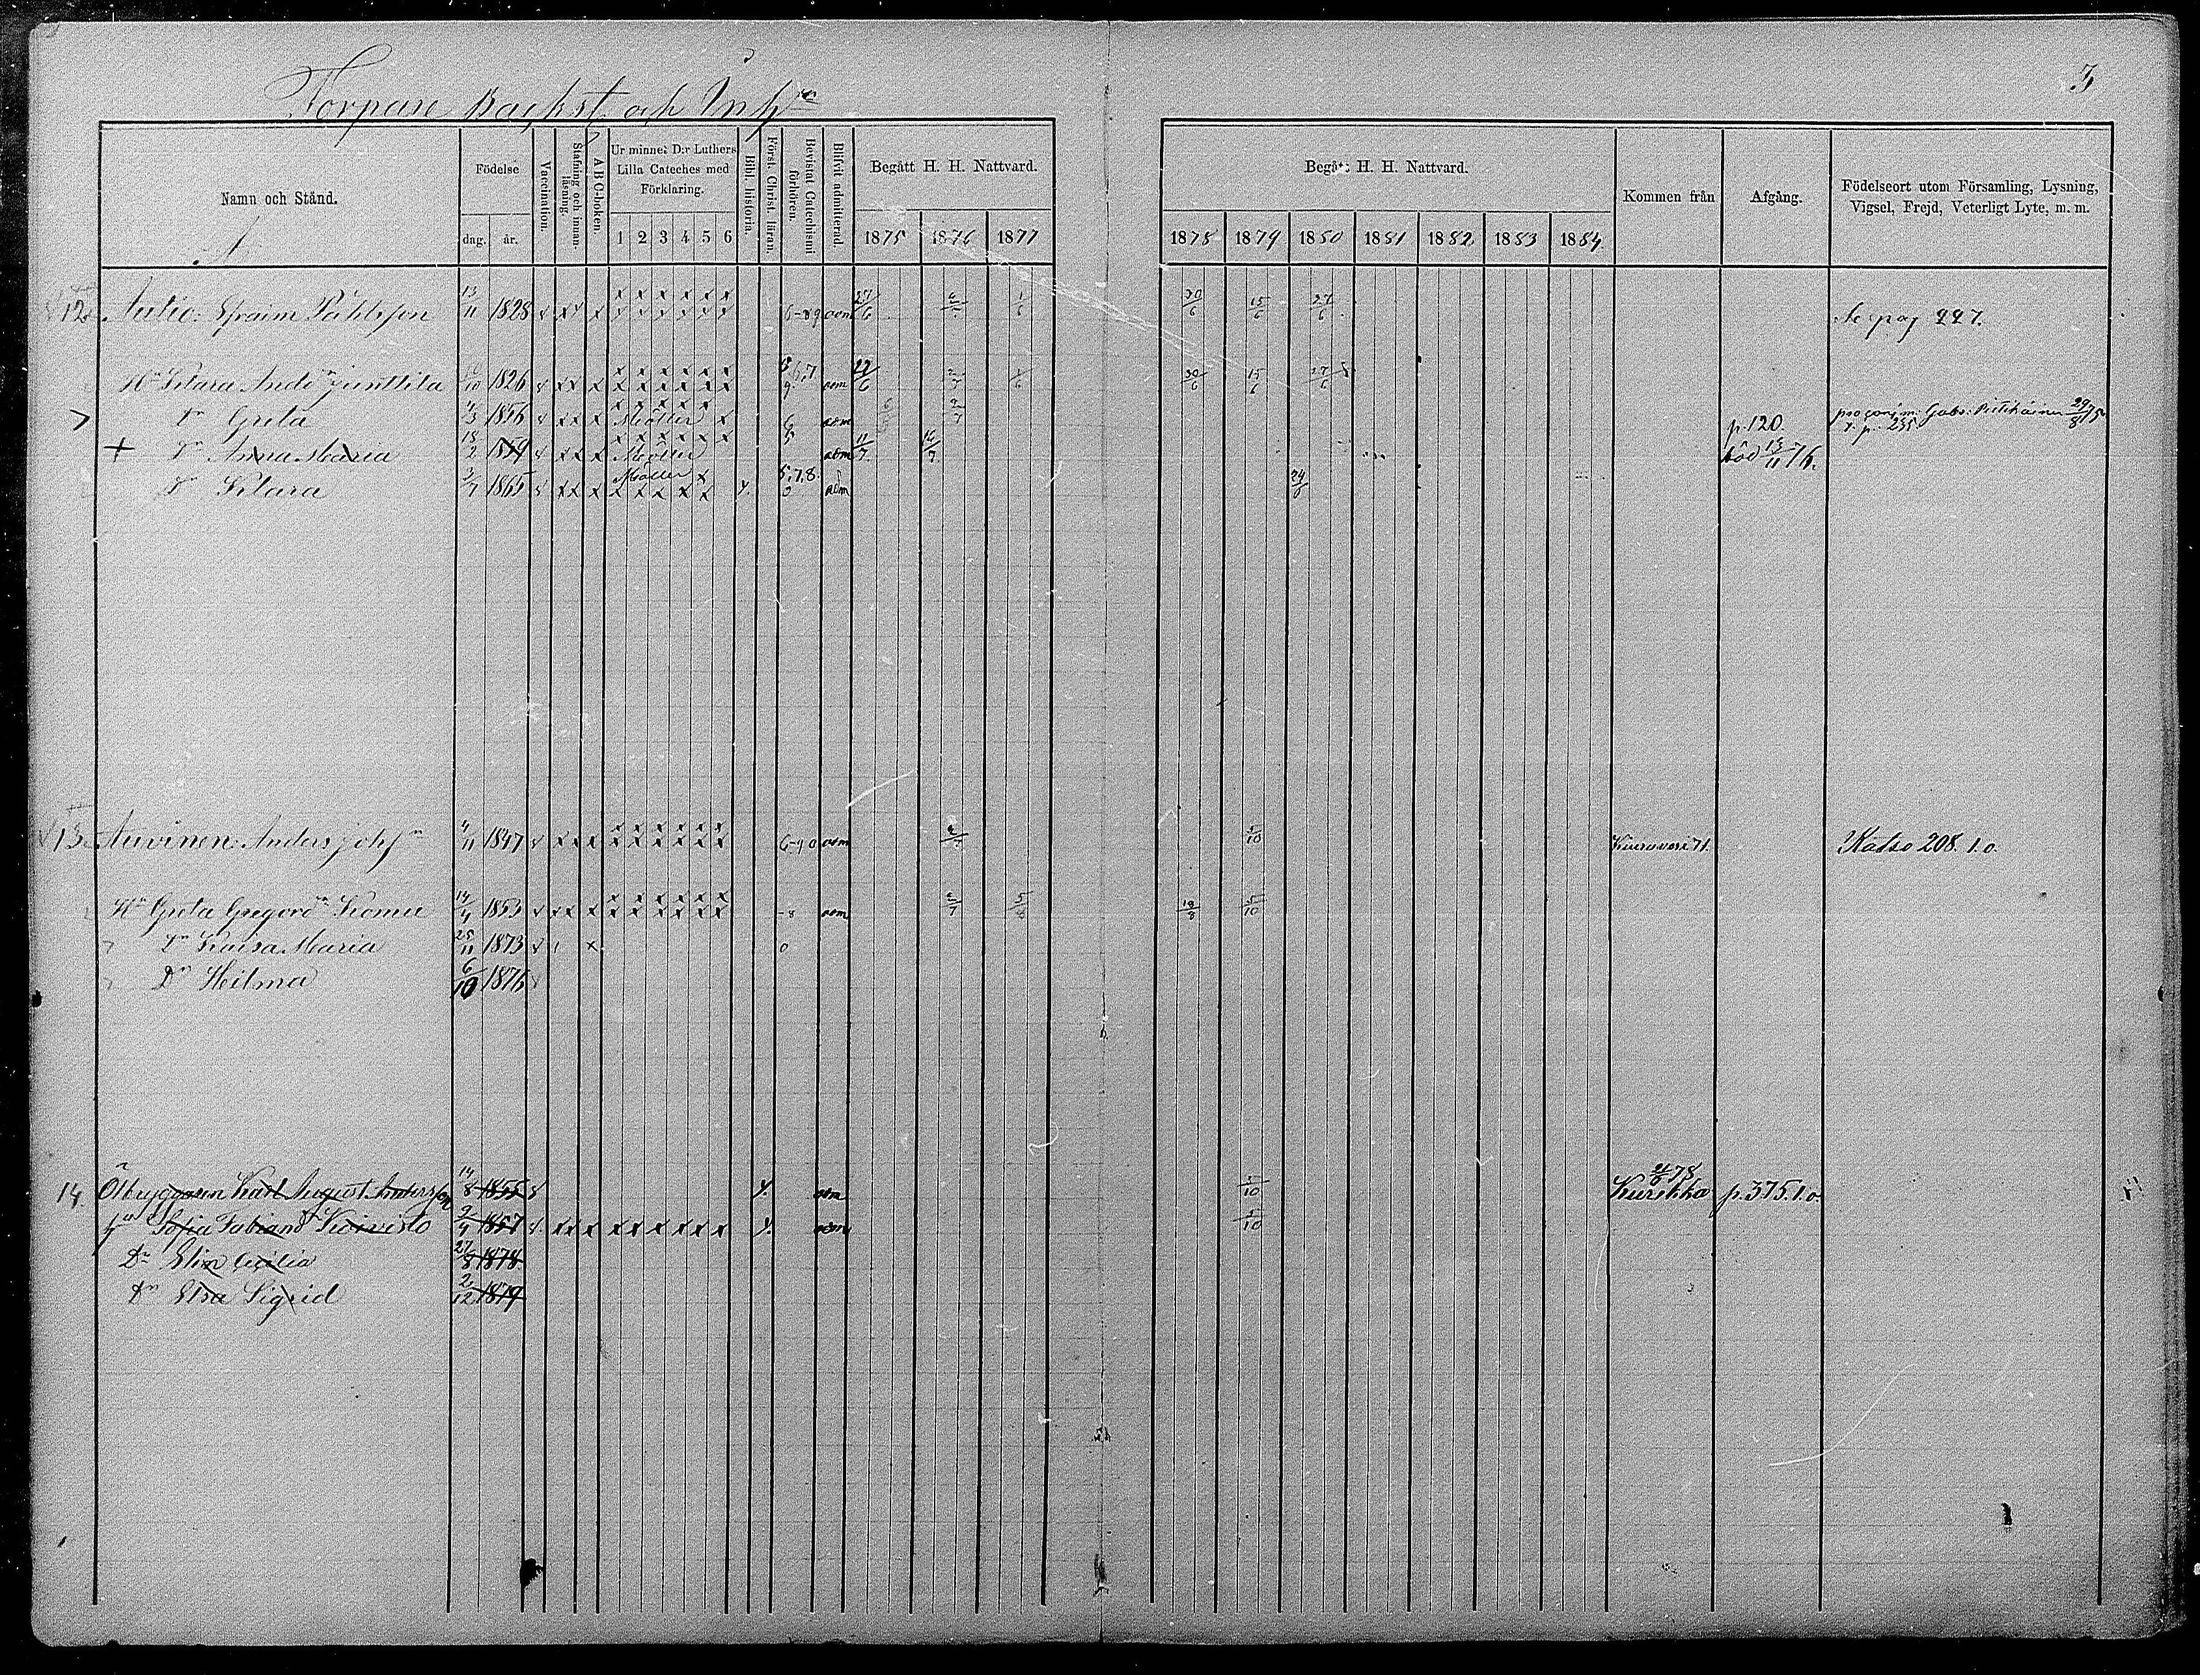 3
Torpare Backst. och Inh:r
Namn och Stånd.
Födelse
dag. år.
Vaccination.
Stafning och innanläsning.
ABC-boken.
Ur minnet D:r Luthers Lilla Cateches med Förklaring.
1 2 3 4 5 6
Bibl. historia.
Först. Christ. läran.
Bevistat Catechismi förhören.
Blifvit admitterad.
Begått H. H. Nattvard.
1875 1876 1877
Begått H. H. Nattvard.
1878 1879 1880 1881 1882 1883 1884
Kommen från
Afgång.
Födelseort utom Församling, Lysning, Vigsel, Frejd, Veterligt Lyte, m. m.
A
12. Autio: Efraim Påhlsson 13/11 1828 x xx x x x x x x x 6-89 adm 27/6 1/6 30/6 15/6 27/6 Se pag 227.
H:u Klara And:dr Junttila 1826 x xx x x x x x x x 6,7 9 adm 27/6 1/6 30/6 15/6 27/6
D:r Greta 4/3 1856 x xx x Möller x 6 adm p. 120. Gabr: 29/8 75
+ D:r Anna Maria 18/2 1859 x xx x Möller adm 11/7 död 13/11 76.
D:r Klara 3/7 1865 x xx x Möller x 5,7,8. adm
13. Auvinen: Anders Joh:s:n 4/11 1847 x xx x x x x x x x 6-90 adm 5/10 Kiuruvesi 71. Katso 208. 1.o.
H:u Greta Gregord:r Komu 14/4 1853 x xx x x x x x x x -8 adm 18/8 5/10
D:r Kaisa Maria 25/11 1873 x x 0
D:r Hilma 6/10 1876
14. Ölbryggaren Karl August Andersson 14/8 1855 x x. adm 5/10 Kurikka 78 p. 375.1.o
h:u Sofia Fabians d:r Koivisto 2/4 1857 x. xx x x x x x x x x. adm 5/10
D:r Elin Cecilia 27/8 1878
D:r Elsa Sigrid 2/12 1879